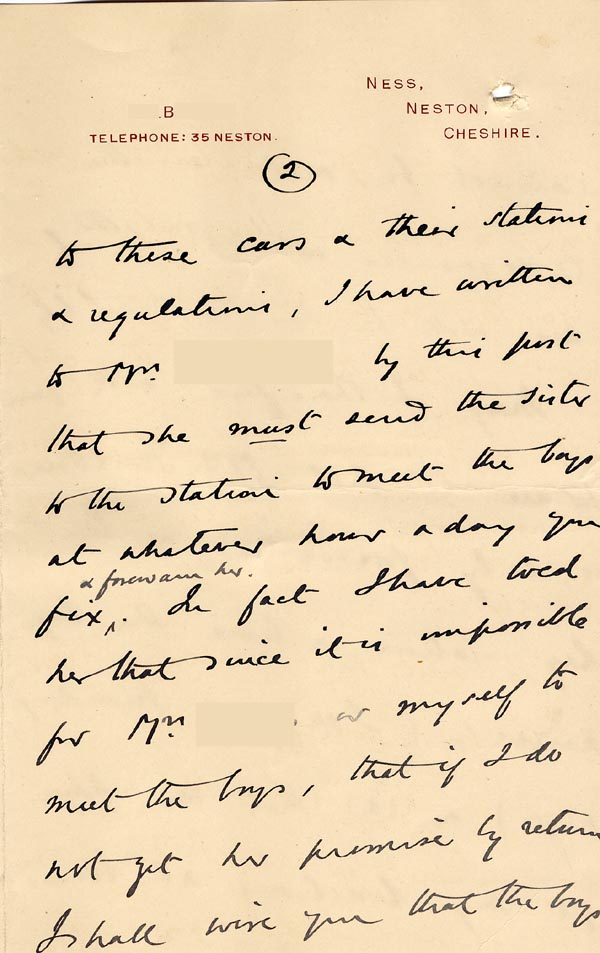 NESS,
.B NESTON,
TELEPHONE: 35 NESTON. CHESHIRE.
2
to these cars & their stations
& regulations, I have written
to Mrs by this post
that she must send the sister
to the station to meet the boys
at whatever hour & day you
& forewarn her.
fix ‸. In fact I have told
her that since it is impossible
for Mrs or myself to
meet the boys, that if I do
not get her promise by return
I shall wire you that the boys